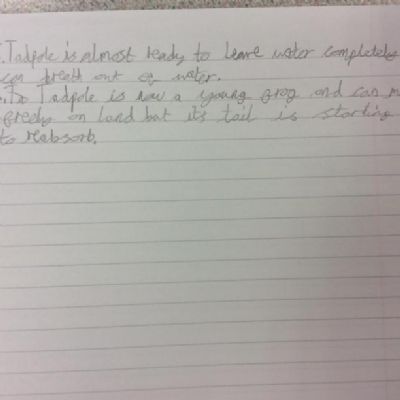 . Tadpole is almost ready to leave water completely
can breath out of water.
. To Tadpole is now a young frog and can m
freely on land but its tail is starting
to reabsorb.